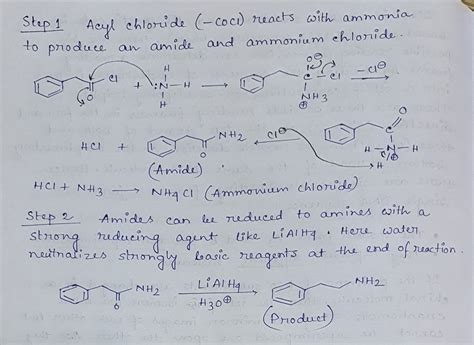 Step 1 Acyl chloride (-COCl) reacts with ammonia
to produce an amide and ammonium chloride.
Cl O + :N H H H → O⊖ C Cl NH3 ⊕ -Cl⊖ →
HCl + NH2 O Cl⊖ ← O C H-N-H ⊕ H
(Amide)
HCl + NH3 → NH4Cl (Ammonium chloride)
Step 2 Amides can be reduced to amines with a
strong reducing agent like LiAlH4. Here water
neutralizes strongly basic reagents at the end of reaction.
NH2 O LiAlH4 → H3O⊕ NH2
(Product)